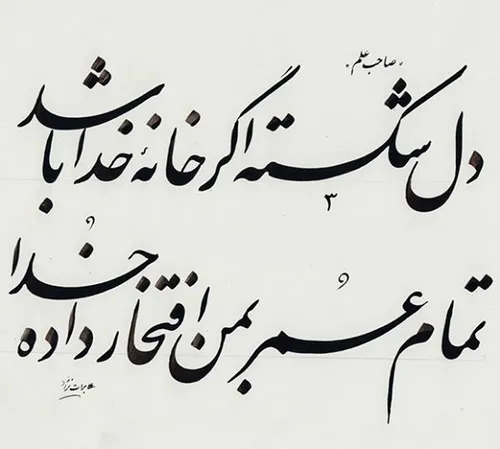 صاحب علم
دل شکسته اگر خانهٔ خدا باشد
تمام عمر بمن افتخار داده خدا